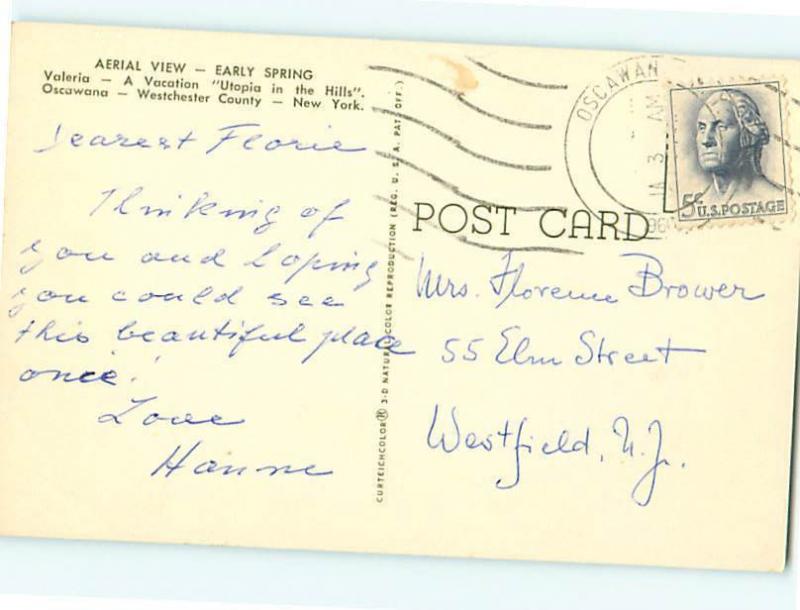 AERIAL VIEW — EARLY SPRING
Valeria — A Vacation "Utopia in the Hills".
Oscawana — Westchester County — New York.
Dearest Florie
Thinking of
you and hoping
you could see
this beautiful place
once!
Love
Hanne
CURTEICHCOLOR® 3-D NATURAL COLOR REPRODUCTION (REG. U. S. A. PAT. OFF.)
POST CARD
OSCAWAN
3
AM
196
5¢ U.S. POSTAGE
Mrs. Florence Brower
55 Elm Street
Westfield, N.J.